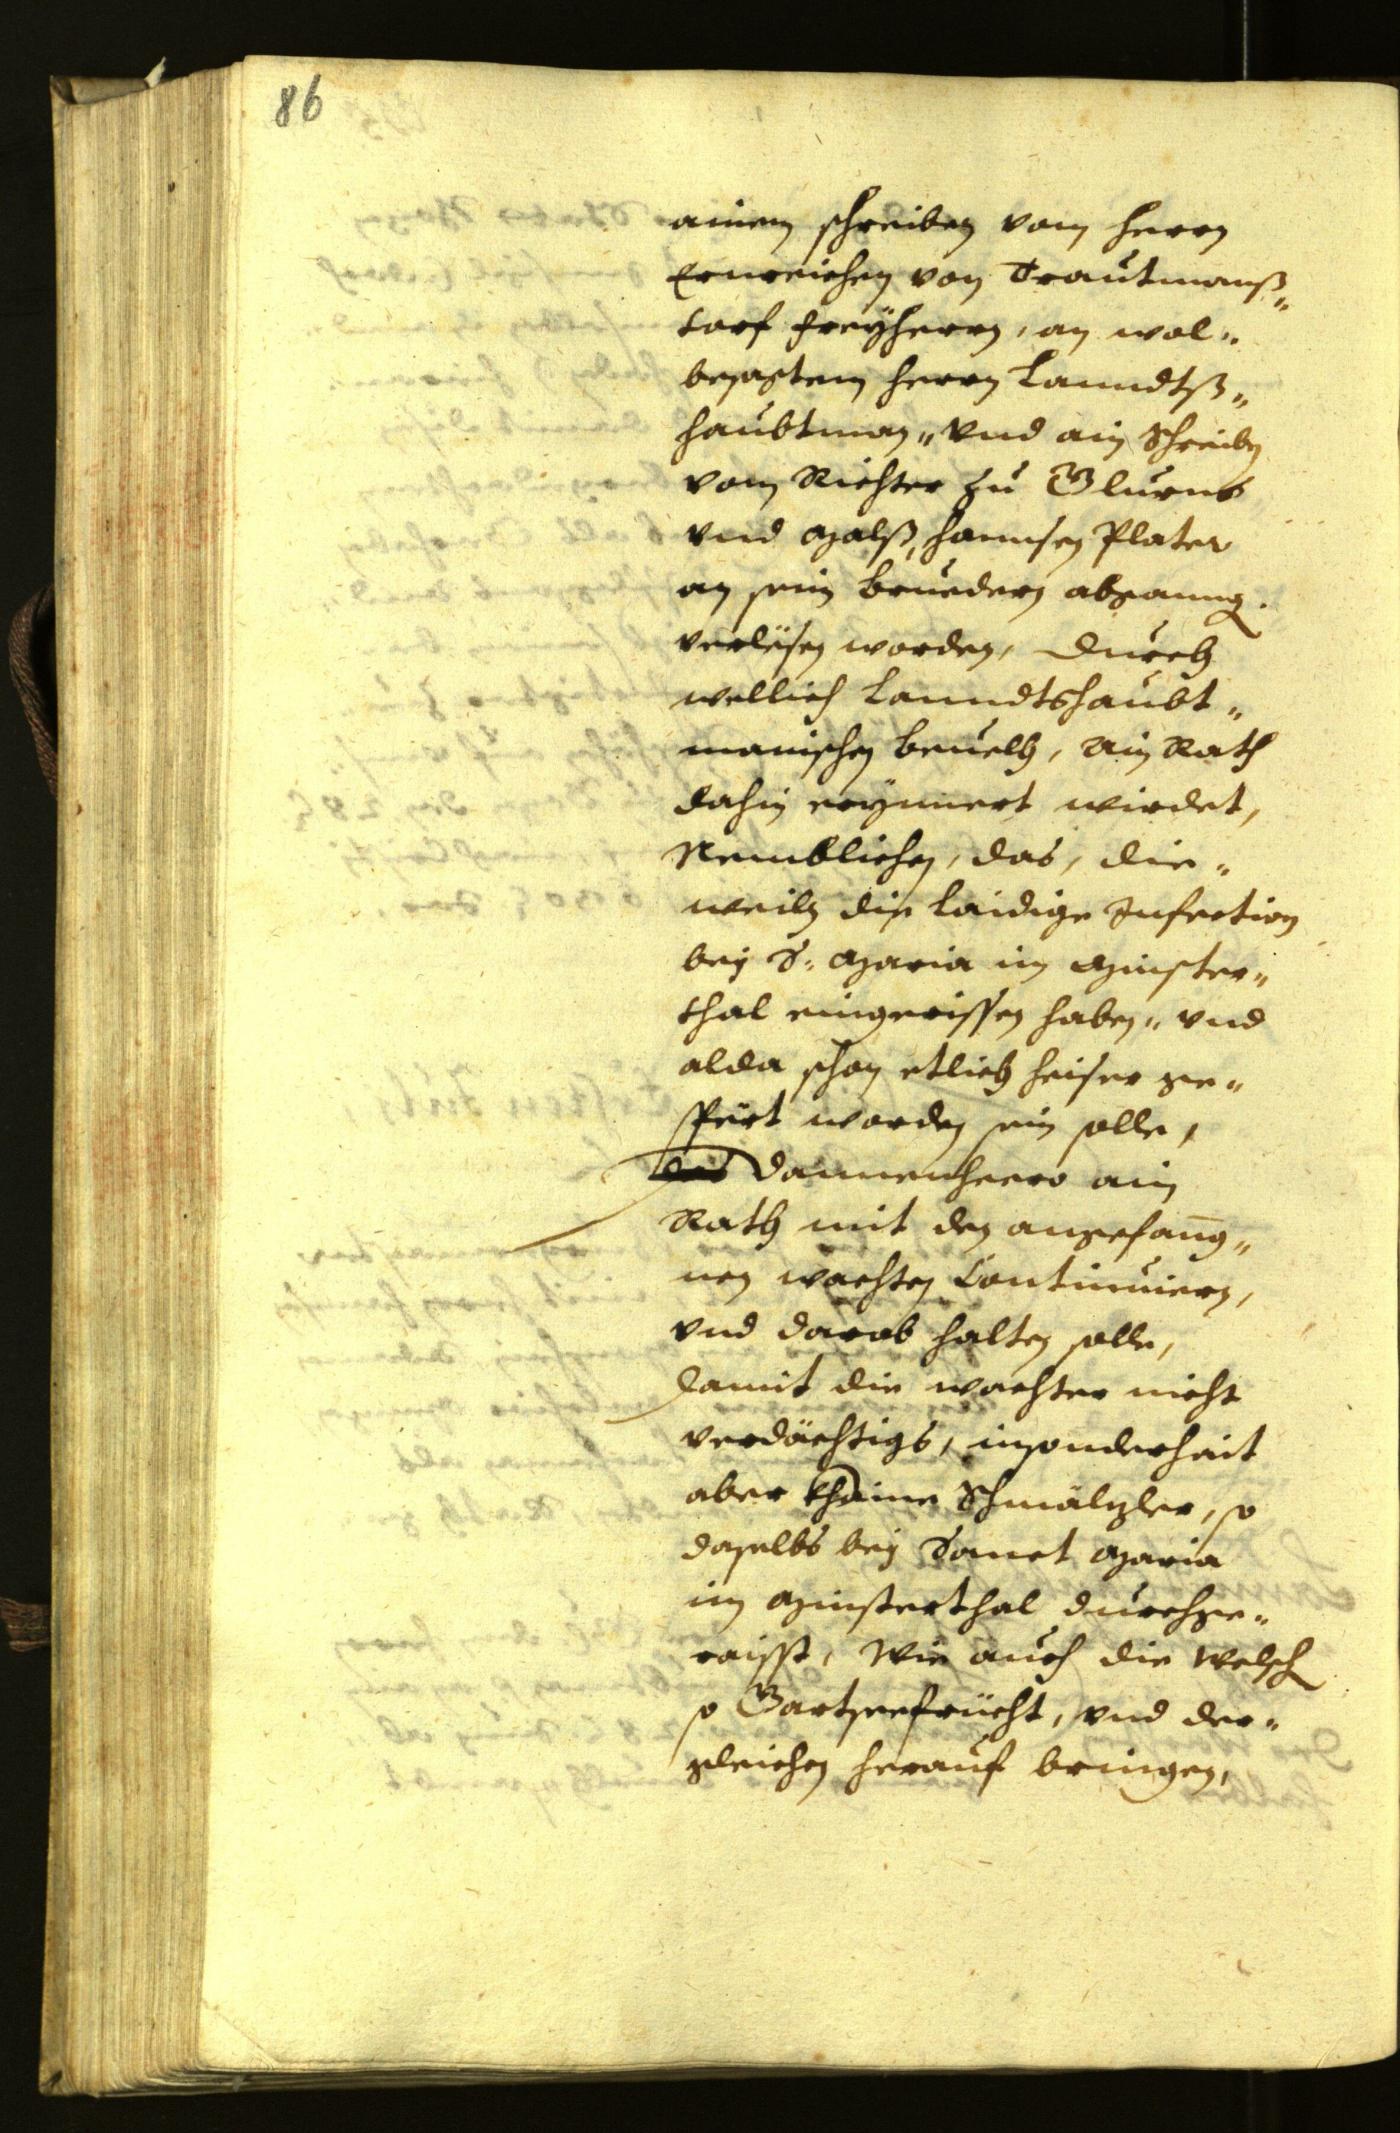 86
ainem schreiben vom herrn
Ernreichen von Trautmanß„
torf freyherrn, an wol„
besagtem herrn Lanndtß„
haubtman„ vnd ain Schreiben
vom Richter zu Glurns
vnd Malß, hannsen Plater
an sein bruedern abganng.
verlesen worden, durch
wellich Lanndtshaubt„
manischen beuelh, ain Rath
dahin erynnert wirdet,
Nemblichen, das, die„
weiln die laidige Infection
bey S: Maria im Minster„
thal eingerissen haben„ vnd
alda schon etlich heiser ge„
spört worden sein solle,
das dannenhero ain
Rath mit den angefanng„
nen wachten Continuiern,
vnd darob halten solle,
damit die wachter nicht
verdächtigs, insonderhait
aber khaine Schmälzler, so
daselbs bey Sanct Maria
im Minsterthal durchge„
raisst, Wie auch die Welsch
so Gartseefrücht, vnd der„
gleichen herauf bringen,